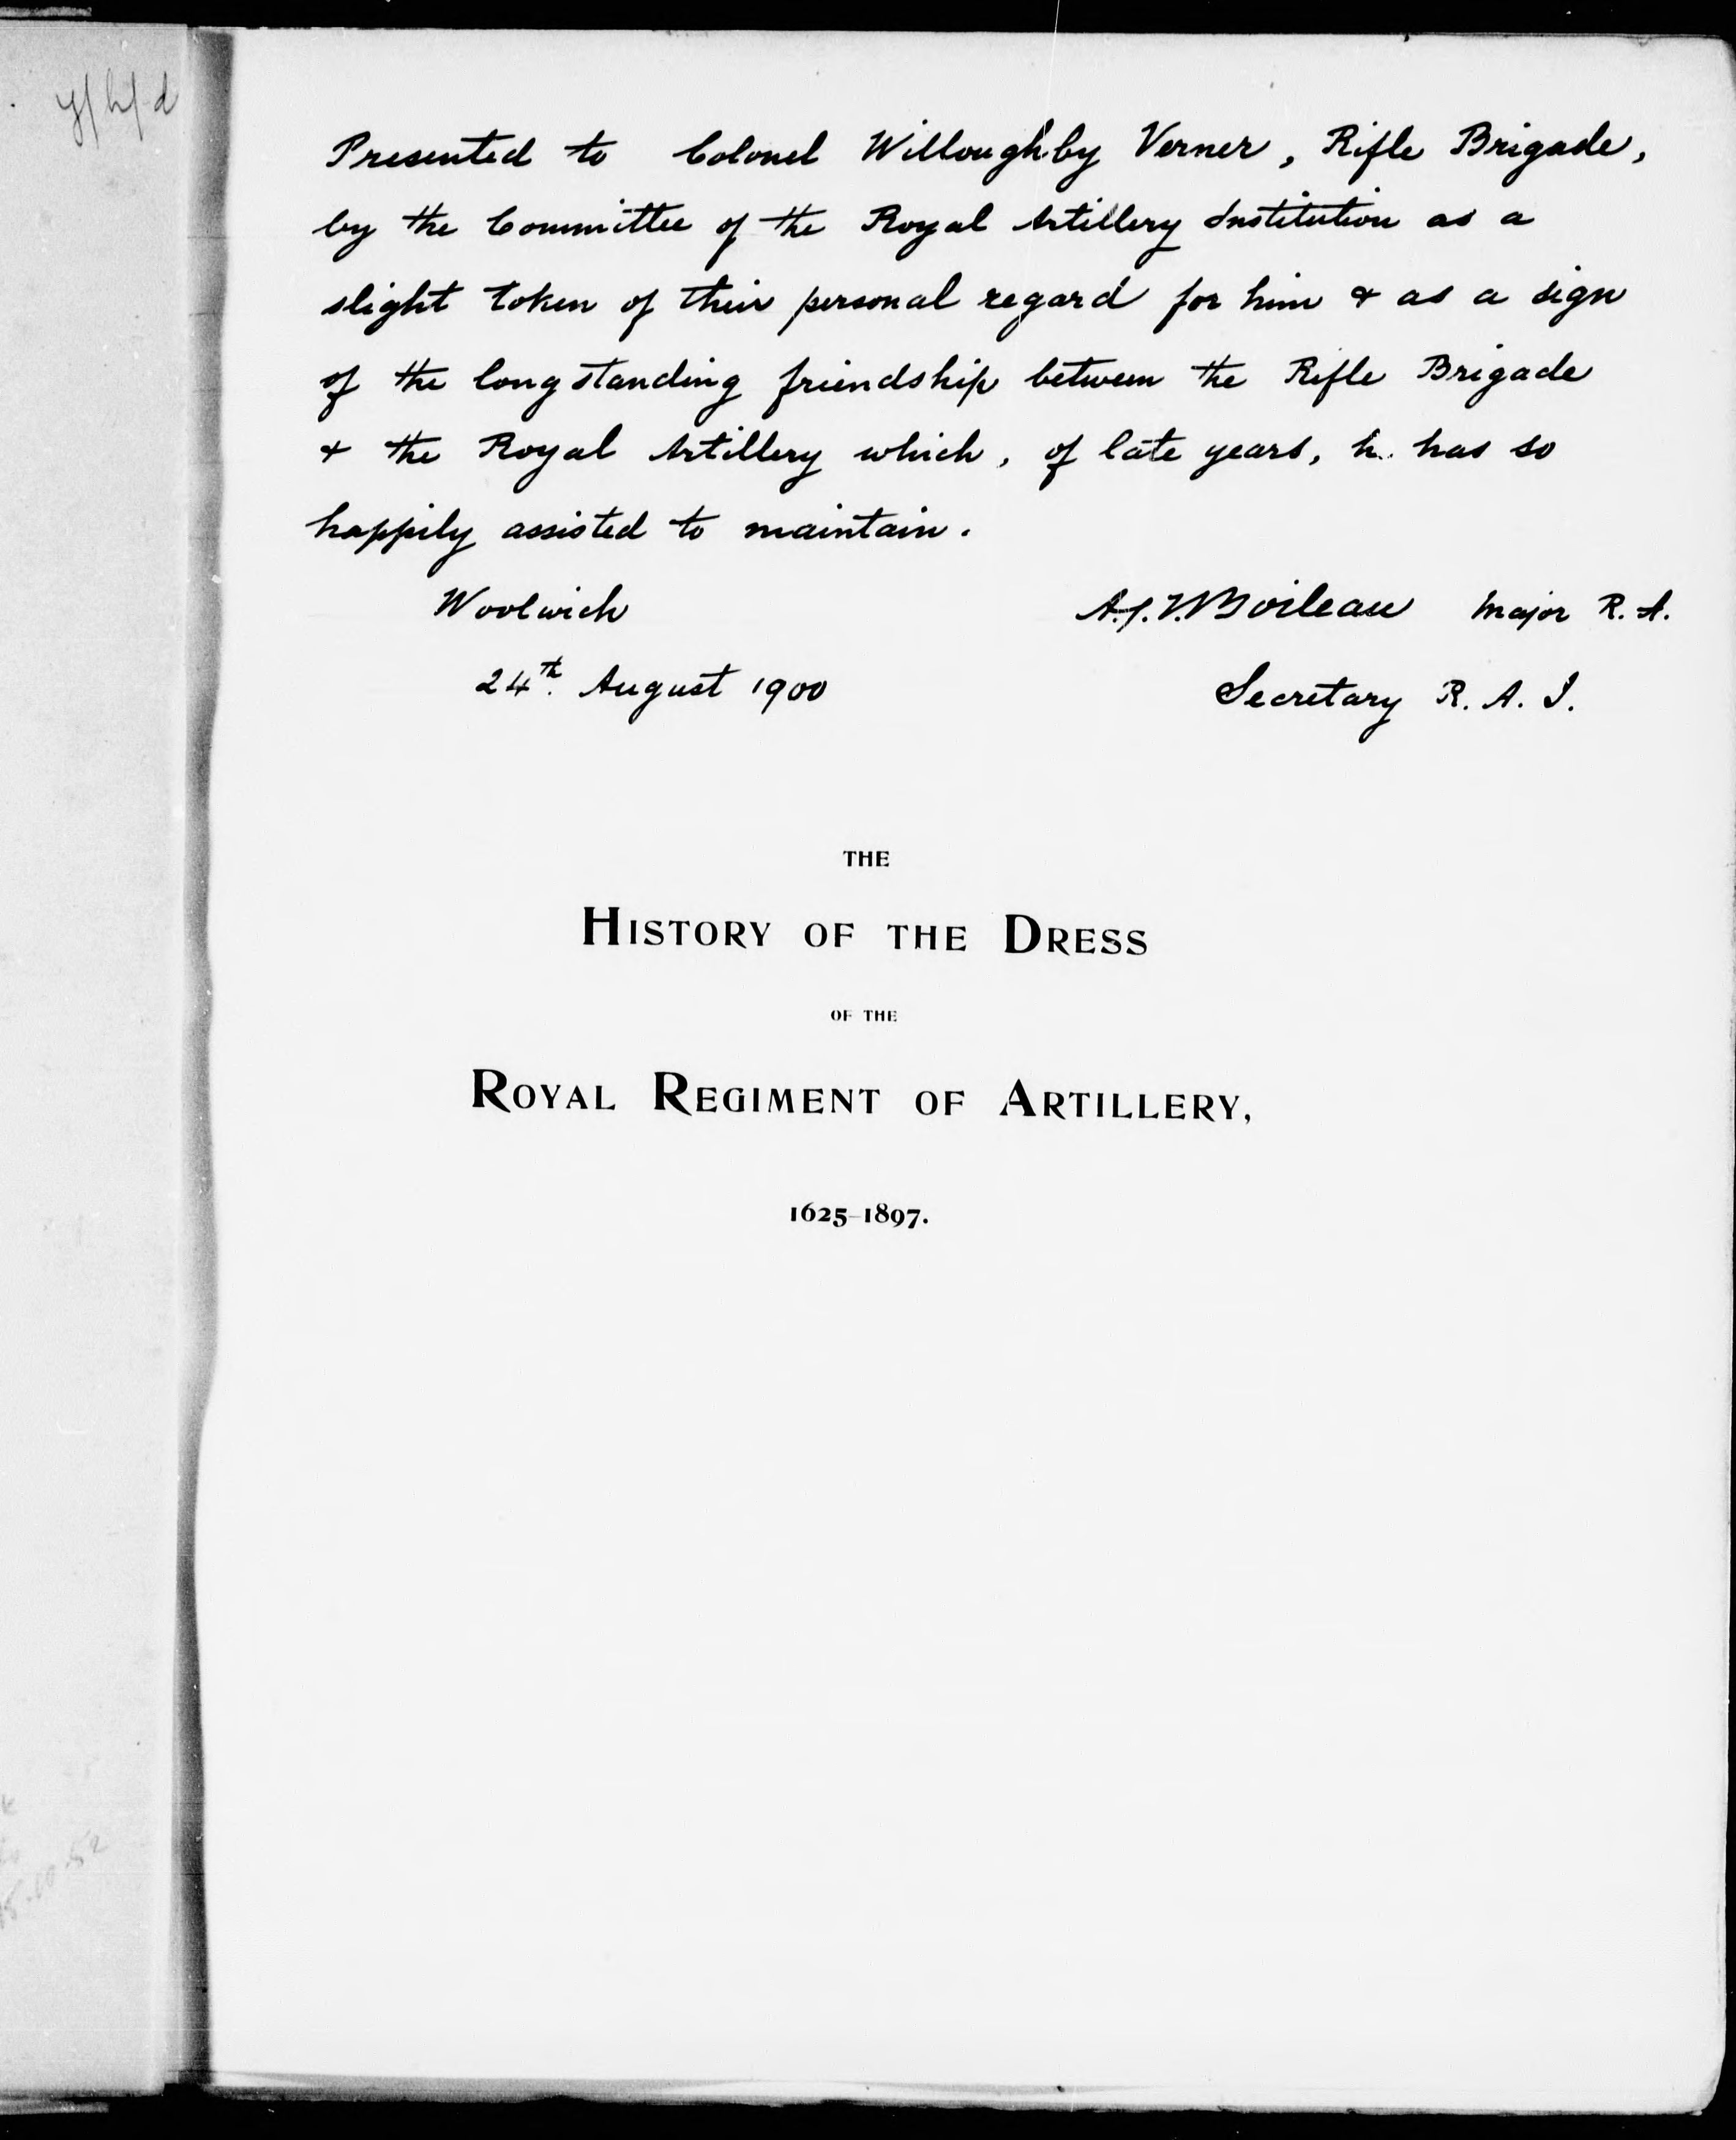 y/h/d
Presented to Colonel Willoughby Verner, Rifle Brigade,
by the Committee of the Royal Artillery Institution as a
slight token of their personal regard for him & as a sign
of the long standing friendship between the Rifle Brigade
& the Royal Artillery which, of late years, h has so
happily assisted to maintain.
Woolwich
Boileau Major R.A.
24th. August 1900
Secretary R. A. I.
THE
HISTORY OF THE DRESS
OF THE
ROYAL REGIMENT OF ARTILLERY,
1625–1897.